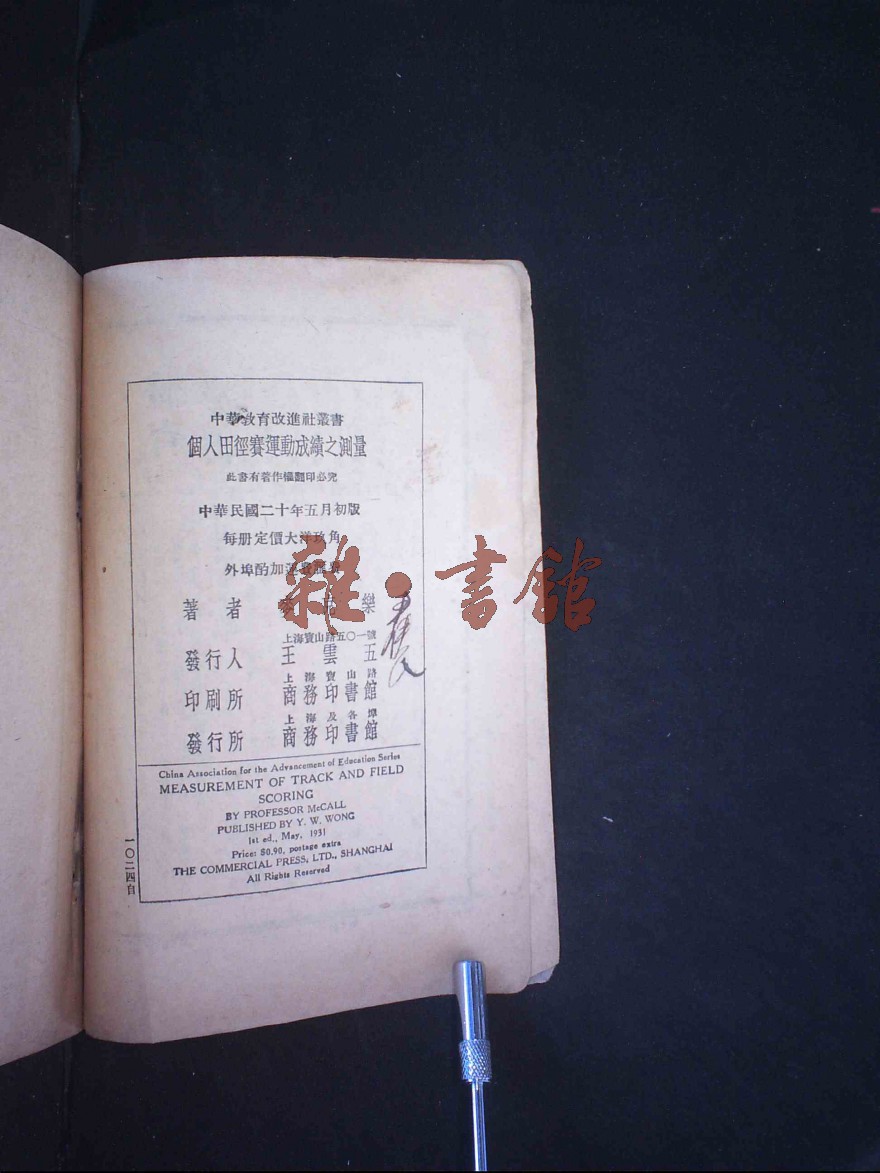 中華教育改進社叢書
個人田徑賽運動成績之測量
此書有著作權翻印必究
中華民國二十年五月初版
每册定價大洋玖角
外埠酌加運費匯費
著者 麥克樂
上海寶山路五〇一號
發行人 王雲五
上海寶山路
印刷所 商務印書館
上海及各埠
發行所 商務印書館
China Association for the Advancement of Education Series
MEASUREMENT OF TRACK AND FIELD
SCORING
BY PROFESSOR McCALL
PUBLISHED BY Y. W. WONG
1st ed., May, 1931
Price: $0.90, postage extra
THE COMMERCIAL PRESS, LTD., SHANGHAI
All Rights Reserved
一〇二四自
雜·書館